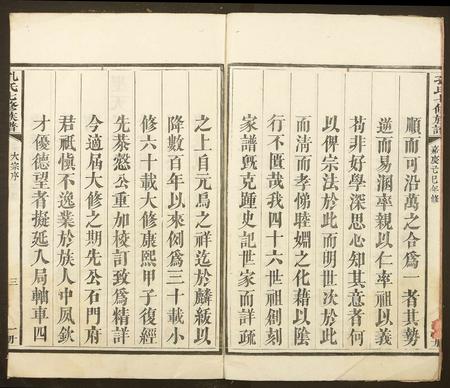 孔氏七修族譜
嘉慶己巳年修
順而可沿萬之合爲一者其勢
逆而易溯率親以仁率祖以義
苟非好學深思心知其意者何
以俾宗法於此而明世次於此
而淸而孝悌睦婣之化藉以陰
行不匱哉我四十六世祖創刻
家譜旣克踵史記世家而詳疏
之上自元鳥之祥迄於麟紱以
降數百年以來例爲三十載小
修六十載大修康熙甲子復經
先恭慤公重加校訂致爲精詳
今適屆大修之期先公石門府
君祗愼不逸業於族人中夙欽
才優德望者擬延入局軸車四
孔氏七修族譜
大宗序
三